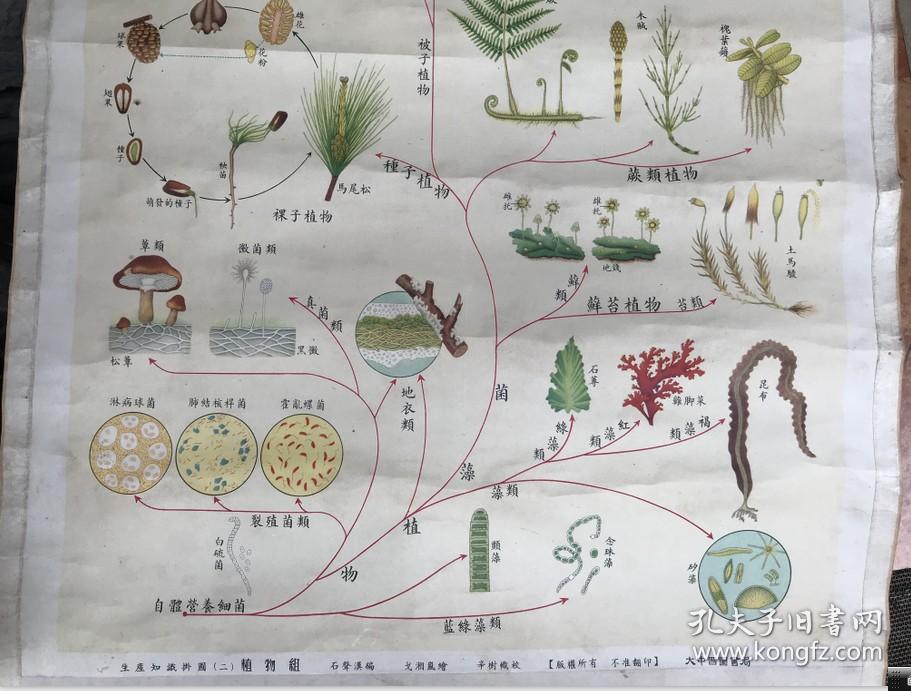 雄花
球果
花粉
翅果
種子
萌發的種子
秧苗
馬尾松
裸子植物
種子植物
被子植物
蕨
木賊
槐葉蘋
蕨類植物
雌托
雄托
地錢
土馬騣
蘚類
蘚苔植物
苔類
蕈類
黴菌類
真菌類
松蕈
黑黴
地衣類
菌
石蓴
雞脚菜
昆布
綠藻類
紅藻類
褐藻類
淋病球菌
肺結核桿菌
霍亂螺菌
裂殖菌類
藻
藻類
植
物
白硫菌
顫藻
念珠藻
砂藻
自體營養細菌
藍綠藻類
生產知識掛圖(二)植物組 石聲漢編 戈湘嵐繪 辛樹幟校 【版權所有 不准翻印】 大中國圖書局
孔夫子旧书网
www.kongfz.com